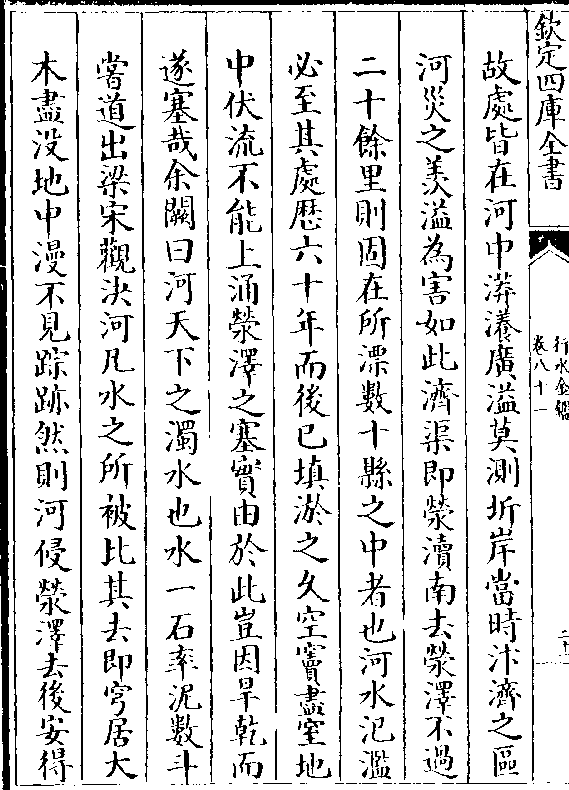 欽定四庫全書
行水金鑑
卷八十一
故處皆在河中漭瀁廣溢莫測圻岸當時汴濟之區
河災之羨溢為害如此濟渠即滎瀆南去滎澤不過
二十餘里則固在所漂數十縣之中者也河水汜濫
必至其處歴六十年而後已填淤之久空竇盡窒地
中伏流不能上涌滎澤之塞實由於此豈因旱乾而
遂塞哉余闕曰河天下之濁水也水一石率泥數斗
嘗道出梁宋觀決河凡水之所被比其去即穹居大
木盡没地中漫不見踪跡然則河侵滎澤去後安得